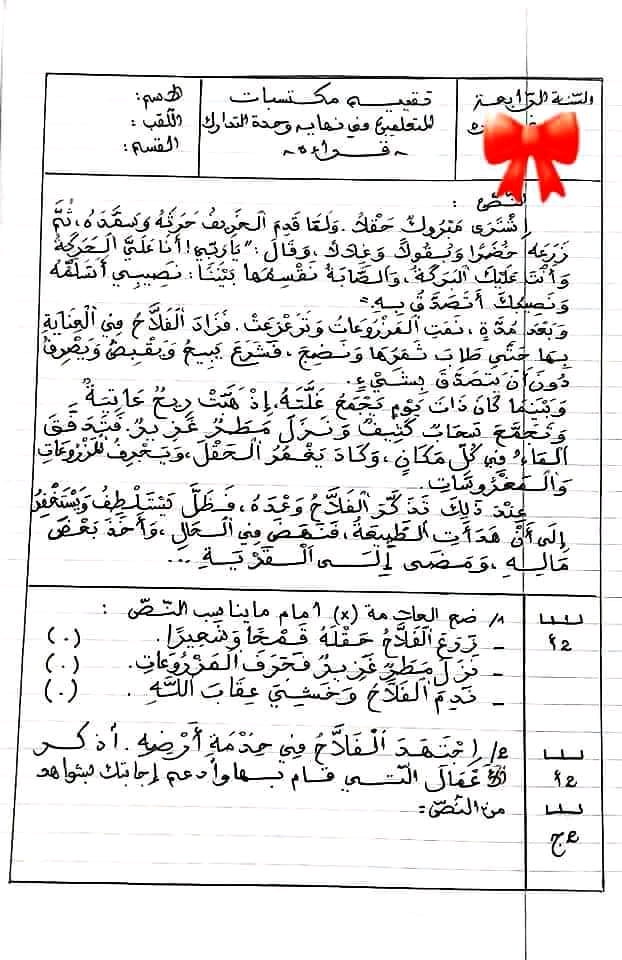 السّنة الرّابعة
تقييم مكتسبات
للمتعلمين في نهاية وحدة التدارك
- قراءة -
الاسم:
اللّقب:
القسم:
النّصّ:
اِشْتَرَى مَبْرُوكٌ حَقْلًا. وَلَمَّا قَدِمَ الْخَرِيفُ حَرَثَهُ وَسَمَّدَهُ، ثُمَّ
زَرَعَهُ خُضَرًا وَبُقُولًا وَغِلَالًا، وَقَالَ: "يَا رَبِّي! أَنَا عَلَيَّ الْحَرَكَةُ
وَأَنْتَ عَلَيْكَ الْبَرَكَةُ، وَالصَّابَةُ نَقْسِمُهَا بَيْنَنَا: نَصِيبِي أَتَسَلَّمُهُ
وَنَصِيبُكَ أَتَصَدَّقُ بِهِ."
وَبَعْدَ مُدَّةٍ، نَمَتِ الْمَزْرُوعَاتُ وَتَرَعْرَعَتْ. فَزَادَ الْفَلَّاحُ فِي الْعِنَايَةِ
بِهَا حَتَّى طَابَ ثَمَرُهَا وَنَضِجَ، فَشَرَعَ يَبِيعُ وَيَقْبِضُ وَيَصْرِفُ
دُونَ أَنْ يَتَصَدَّقَ بِشَيْءٍ.
وَبَيْنَمَا كَانَ ذَاتَ يَوْمٍ يَجْمَعُ غَلَّتَهُ، إِذْ هَبَّتْ رِيحٌ عَاتِيَةٌ
وَتَجَمَّعَ سَحَابٌ كَثِيفٌ وَنَزَلَ مَطَرٌ غَزِيرٌ فَتَدَفَّقَ
الْمَاءُ فِي كُلِّ مَكَانٍ، وَكَادَ يَغْمُرُ الْحَقْلَ، وَيَجْرِفُ الْمَزْرُوعَاتِ
وَالْمَغْرُوسَاتِ.
عِنْدَ ذَلِكَ تَذَكَّرَ الْفَلَّاحُ وَعْدَهُ، فَظَلَّ يَسْتَلْطِفُ وَيَسْتَغْفِرُ
إِلَى أَنْ هَدَأَتِ الطَّبِيعَةُ، فَنَهَضَ فِي الْحَالِ، وَأَخَذَ بَعْضَ
مَالِهِ، وَمَضَى إِلَى الْقَرْيَةِ ...
1/ ضع العلامة (x) أمام ما يناسب النّصّ :
- زَرَعَ الْفَلَّاحُ حَقْلَهُ قَمْحًا وَشَعِيرًا. (.)
- نَزَلَ مَطَرٌ غَزِيرٌ فَجَرَفَ الْمَزْرُوعَاتِ. (.)
- نَدِمَ الْفَلَّاحُ وَخَشِيَ عِقَابَ اللَّهِ. (.)
مع2أ
2/ اِجْتَهَدَ الْفَلَّاحُ فِي خِدْمَةِ أَرْضِهِ. أذكر
الأعمال الّتي قام بها وأدعم إجابتك بشواهد
من النّصّ:
2أ
2ج